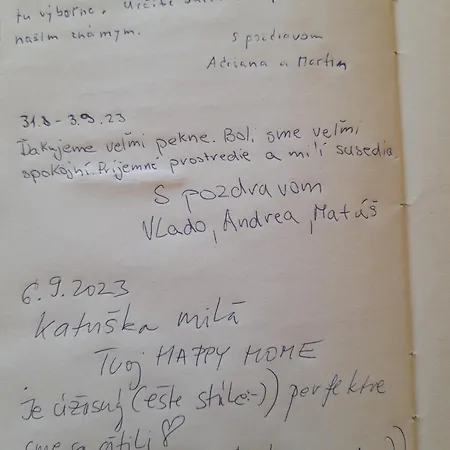 tu výborne. Určite
našim známym.
S pozdravom
Adriana a Martin
31.8 - 3.9.23
Ďakujeme veľmi pekne. Boli sme veľmi
spokojní. Príjemné prostredie a milí susedia.
S pozdravom
Vlado, Andrea, Matúš
6.9.2023
Katuška milá
Tvoj HAPPY HOME
Je úžasný (ešte stále:-)) perfektne
sme sa cítili ♡